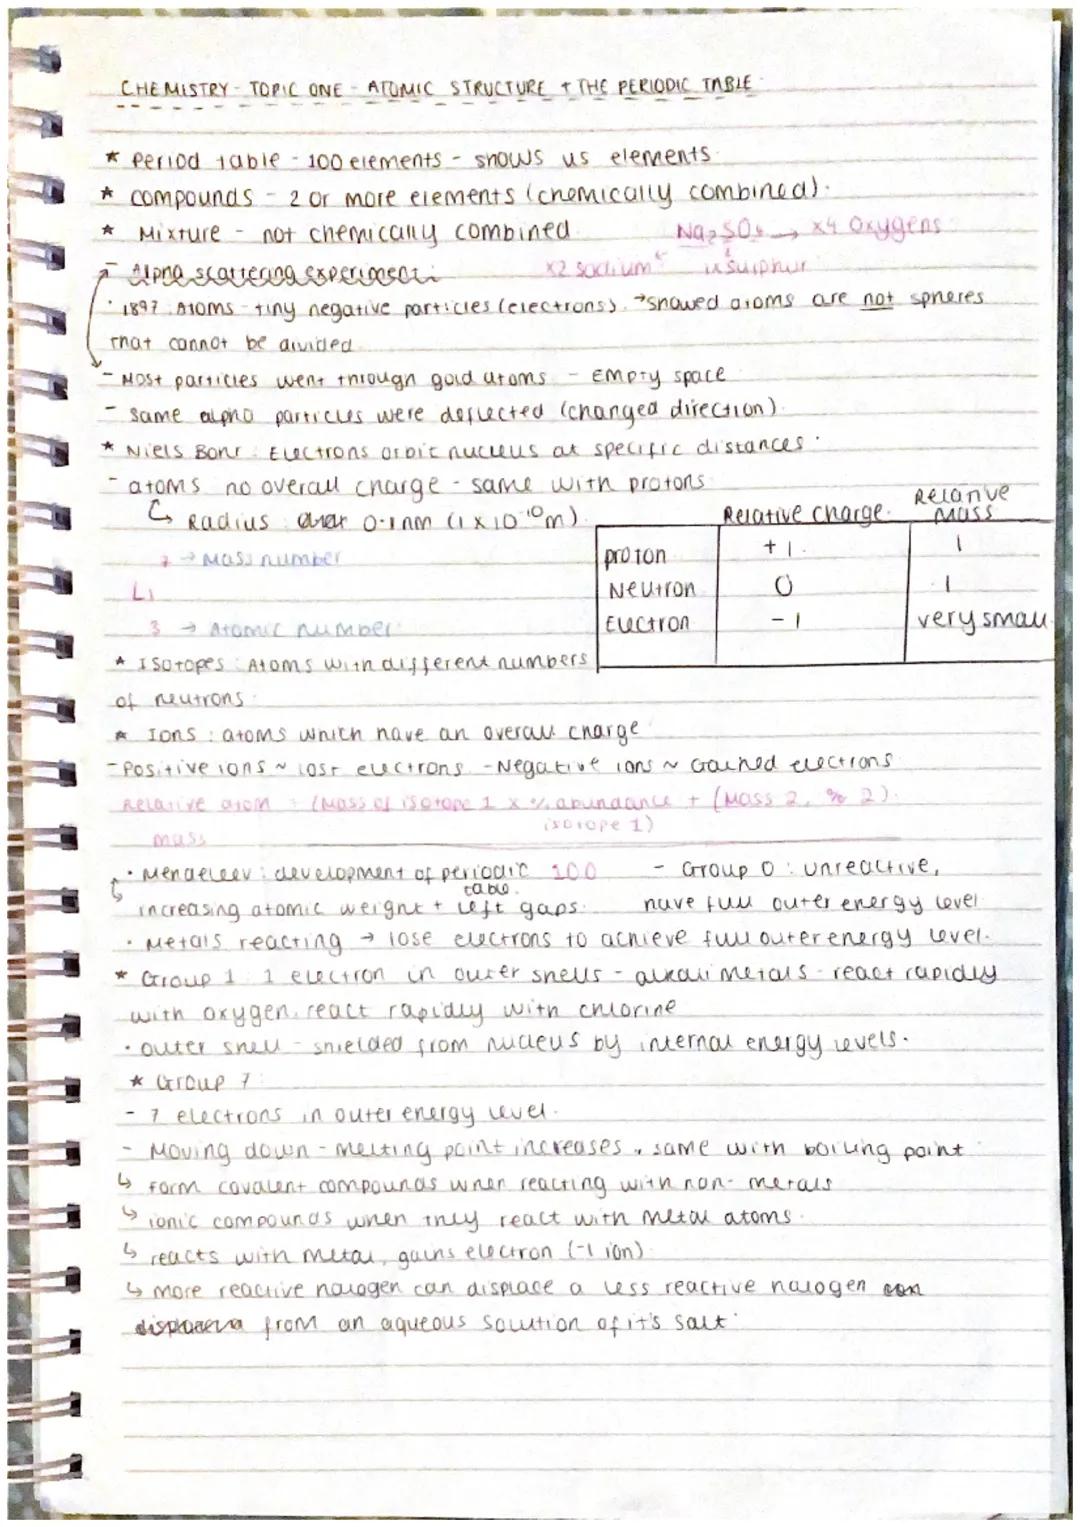 CHEMISTRY - TOPIC ONE - ATOMIC STRUCTURE + THE PERIODIC TABLE
* Period table - 100 elements - shows us elements.
* compounds - 2 or more elements (chemically combined).
* Mixture - not chemically combined.
Na₂SO₄ → x4 Oxygens
x2 sodium
1x sulphur
- Alpha scattering experiment:
· 1897: Atoms - tiny negative particles (electrons). → showed atoms are not spheres
that cannot be divided.
- Most particles went through gold atoms - Empty space
- Some alpha particles were deflected (changed direction).
* Niels Bohr: Electrons orbit nucleus at specific distances.
- atoms no overall charge - same with protons.
↳ Radius: 0.1nm (1 x 10⁻¹⁰m).
Relative charge. Relative Mass
proton +1. 1
Neutron 0 1
Electron -1 very small
7 → Mass number
Li
3 → Atomic number
* Isotopes: Atoms with different numbers
of neutrons.
* Ions: atoms which have an overall charge
- Positive ions ~ lost electrons - Negative ions ~ Gained electrons
Relative atom mass = (Mass of isotope 1 x % abundance isotope 1) + (Mass 2, % 2).
100
· Mendeleev: development of periodic table.
↳ increasing atomic weight + left gaps.
- Group 0: unreactive,
have full outer energy level
· Metals reacting → lose electrons to achieve full outer energy level.
* Group 1: 1 electron in outer shells - alkali metals - react rapidly
with oxygen, react rapidly with chlorine
· outer shell - shielded from nucleus by internal energy levels.
* Group 7:
- 7 electrons in outer energy level.
- Moving down - melting point increases, same with boiling point
↳ form covalent compounds when reacting with non-metals
↳ ionic compounds when they react with metal atoms.
↳ reacts with metal, gains electron (-1 ion)
↳ more reactive halogen can displace a less reactive halogen
from an aqueous solution of it's salt.